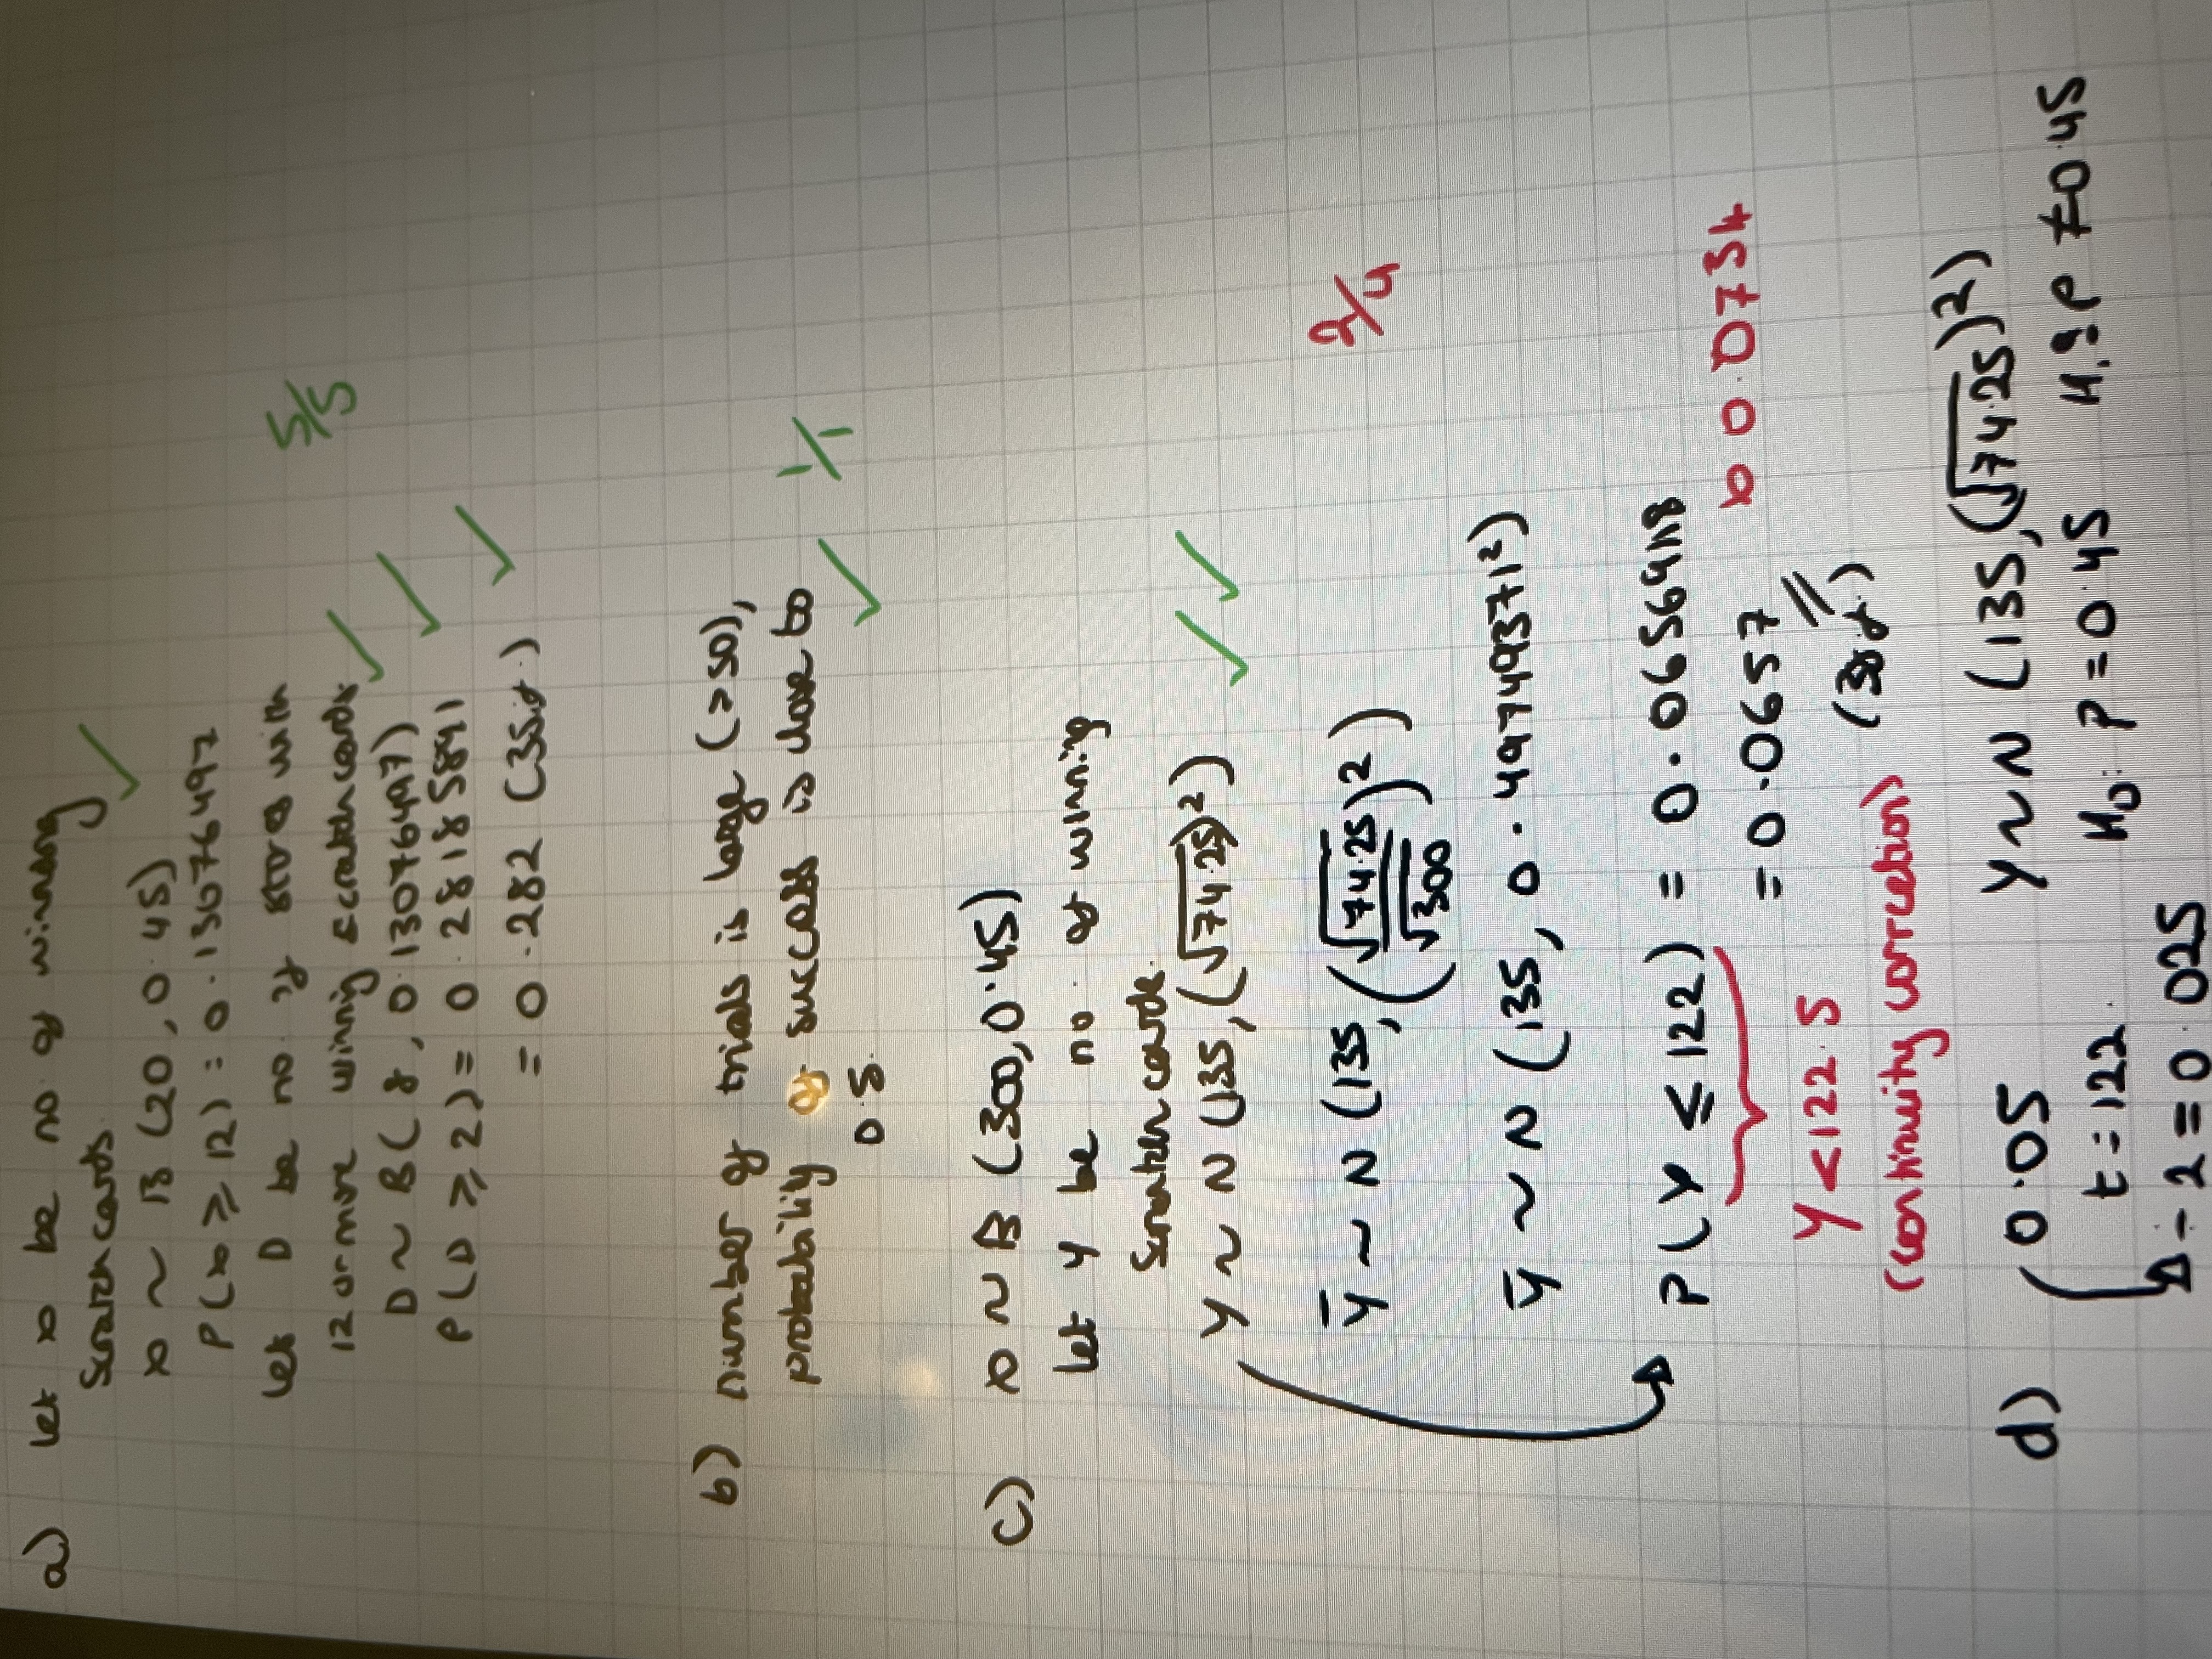 a) let x be no of winning
Scratch cards.
x ~ B (20, 0.45)
P(x ≥ 12) = 0.13076497
let D be no. of boxes with
12 or more winning scratch cards
D ~ B (8, 0.13076497)
P(D ≥ 2) = 0.28185891
= 0.282 (3s.f.)
5/5
b) number of trials is large (>50),
probability of success is close to
0.5.
1/1
c) x ~ B (300, 0.45)
let y be no. of winning
Scratch cards.
y ~ N (135, (√74.25)²)
2/4
ȳ ~ N (135, (√74.25/√300)²)
ȳ ~ N (135, 0.49749371²)
P(Y ≤ 122) = 0.0656918
x 0.0734
= 0.0657
(3s.f)
Y < 122.5
(continuity correction)
d) 0.05 Y ~ N (135, (√74.25)²)
t = 122. H₀: P = 0.45 H₁: P ≠ 0.45
÷ 2 = 0.025